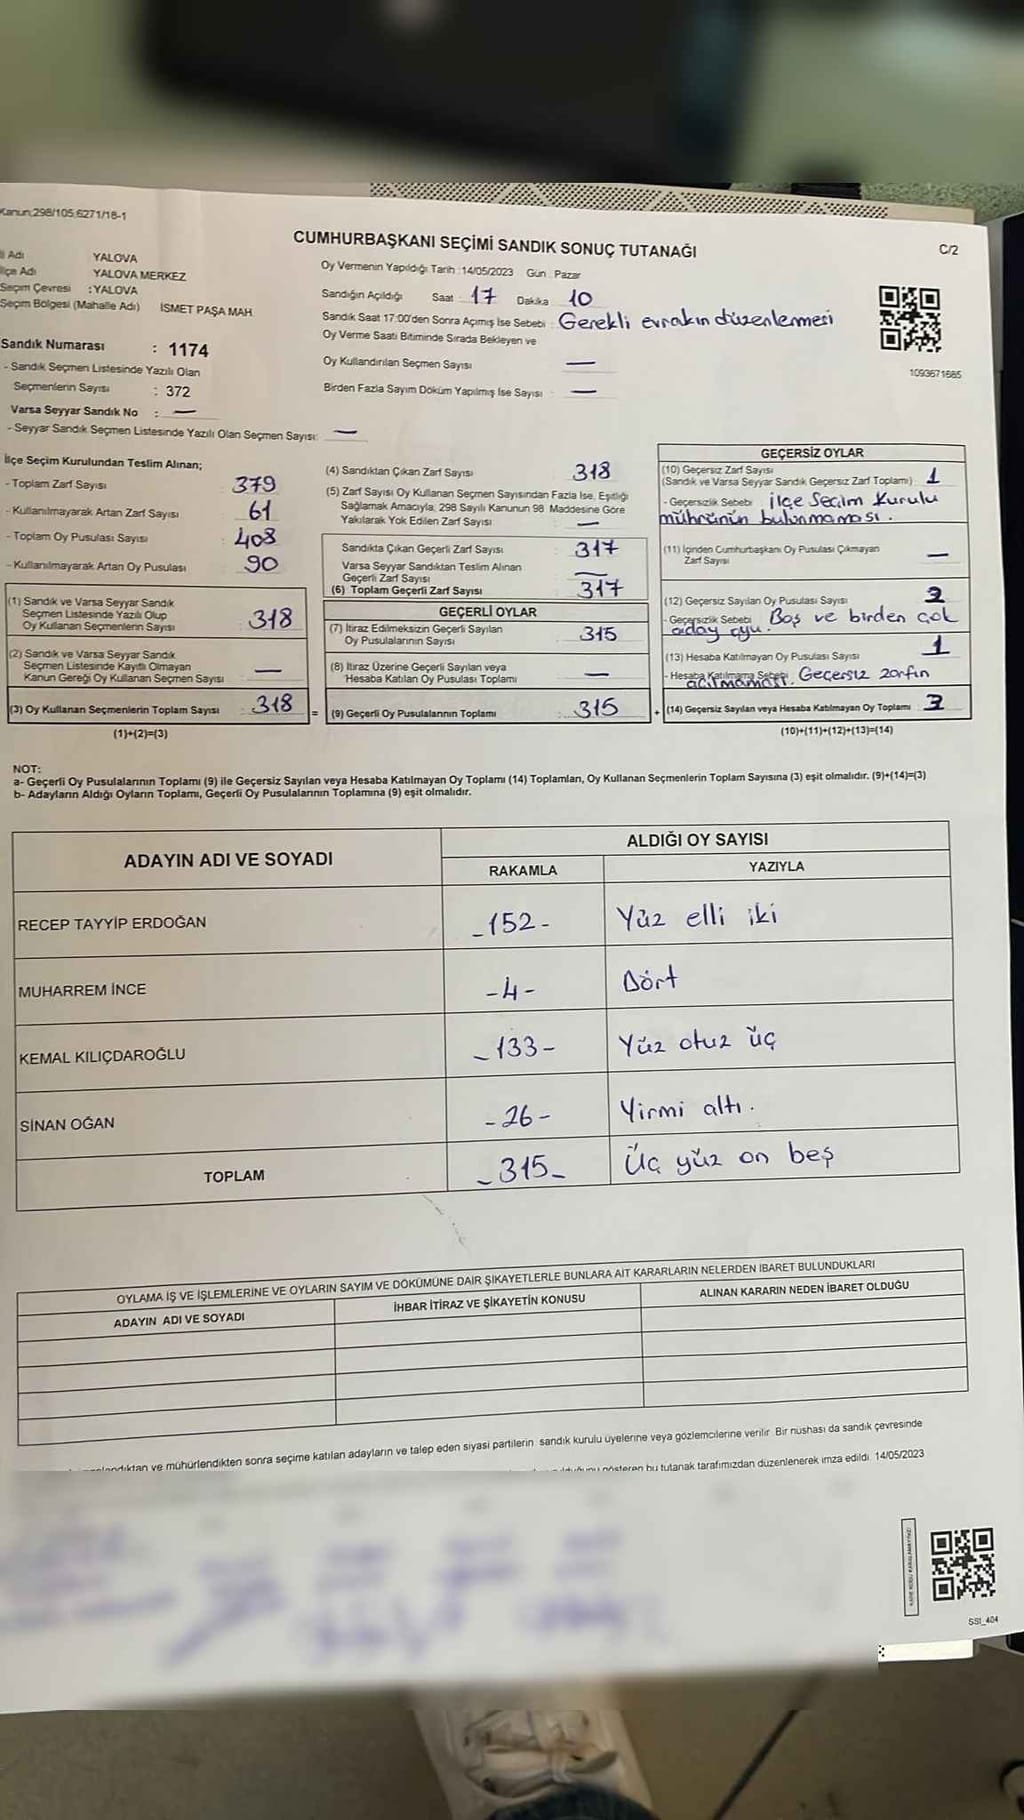 Kanun;298/105,6271/18-1
CUMHURBAŞKANI SEÇİMİ SANDIK SONUÇ TUTANAĞI
C/2
Adı YALOVA
İlçe Adı YALOVA MERKEZ
Seçim Çevresi :YALOVA
Seçim Bölgesi (Mahalle Adı) İSMET PAŞA MAH.
Sandık Numarası : 1174
- Sandık Seçmen Listesinde Yazılı Olan
Seçmenlerin Sayısı : 372
Varsa Seyyar Sandık No : —
- Seyyar Sandık Seçmen Listesinde Yazılı Olan Seçmen Sayısı: —
Oy Vermenin Yapıldığı Tarih :14/05/2023 Gün : Pazar
Sandığın Açıldığı Saat : 17 Dakika 10
Sandık Saat 17:00'den Sonra Açımış İse Sebebi : Gerekli evrakın düzenlenmesi
Oy Verme Saati Bitiminde Sırada Bekleyen ve
Oy Kullandırılan Seçmen Sayısı —
Birden Fazla Sayım Döküm Yapılmış İse Sayısı : —
1093671685
İlçe Seçim Kurulundan Teslim Alınan;
- Toplam Zarf Sayısı 379
- Kullanılmayarak Artan Zarf Sayısı 61
- Toplam Oy Pusulası Sayısı 408
- Kullanılmayarak Artan Oy Pusulası 90
(1) Sandık ve Varsa Seyyar Sandık
Seçmen Listesinde Yazılı Olup
Oy Kullanan Seçmenlerin Sayısı 318
(2) Sandık ve Varsa Seyyar Sandık
Seçmen Listesinde Kayıtlı Olmayan
Kanun Gereği Oy Kullanan Seçmen Sayısı —
(3) Oy Kullanan Seçmenlerin Toplam Sayısı : 318 =
(1)+(2)=(3)
(4) Sandıktan Çıkan Zarf Sayısı 318
(5) Zarf Sayısı Oy Kullanan Seçmen Sayısından Fazla İse, Eşitliği
Sağlamak Amacıyla, 298 Sayılı Kanunun 98 Maddesine Göre
Yakılarak Yok Edilen Zarf Sayısı —
Sandıkta Çıkan Geçerli Zarf Sayısı 317
Varsa Seyyar Sandıktan Teslim Alınan
Geçerli Zarf Sayısı —
(6) Toplam Geçerli Zarf Sayısı 317
GEÇERLİ OYLAR
(7) İtiraz Edilmeksizin Geçerli Sayılan
Oy Pusulalarının Sayısı 315
(8) İtiraz Üzerine Geçerli Sayılan veya
Hesaba Katılan Oy Pusulası Toplamı —
(9) Geçerli Oy Pusulalarının Toplamı : 315 +
GEÇERSİZ OYLAR
(10) Geçersiz Zarf Sayısı
(Sandık ve Varsa Seyyar Sandık Geçersiz Zarf Toplamı) 1
- Geçersizlik Sebebi : İlçe Seçim Kurulu
mührünün bulunmaması.
(11) İçinden Cumhurbaşkanı Oy Pusulası Çıkmayan
Zarf Sayısı —
(12) Geçersiz Sayılan Oy Pusulası Sayısı 2
- Geçersizlik Sebebi : Boş ve birden çok
aday oyu.
(13) Hesaba Katılmayan Oy Pusulası Sayısı 1
- Hesaba Katılmama Sebebi : Geçersiz zarfın
açılmaması.
(14) Geçersiz Sayılan veya Hesaba Katılmayan Oy Toplamı 3
(10)+(11)+(12)+(13)=(14)
NOT:
a- Geçerli Oy Pusulalarının Toplamı (9) ile Geçersiz Sayılan veya Hesaba Katılmayan Oy Toplamı (14) Toplamları, Oy Kullanan Seçmenlerin Toplam Sayısına (3) eşit olmalıdır. (9)+(14)=(3)
b- Adayların Aldığı Oyların Toplamı, Geçerli Oy Pusulalarının Toplamına (9) eşit olmalıdır.
ADAYIN ADI VE SOYADI
ALDIĞI OY SAYISI
RAKAMLA YAZIYLA
RECEP TAYYİP ERDOĞAN -152- Yüz elli iki
MUHARREM İNCE -4- Dört
KEMAL KILIÇDAROĞLU -133- Yüz otuz üç
SİNAN OĞAN -26- Yirmi altı.
TOPLAM -315- Üç yüz on beş
OYLAMA İŞ VE İŞLEMLERİNE VE OYLARIN SAYIM VE DÖKÜMÜNE DAİR ŞİKAYETLERLE BUNLARA AİT KARARLARIN NELERDEN İBARET BULUNDUKLARI
ADAYIN ADI VE SOYADI İHBAR İTİRAZ VE ŞİKAYETİN KONUSU ALINAN KARARIN NEDEN İBARET OLDUĞU
ve mühürlendikten sonra seçime katılan adayların ve talep eden siyasi partilerin sandık kurulu üyelerine veya gözlemcilerine verilir. Bir nüshası da sandık çevresinde
gösteren bu tutanak tarafımızdan düzenlenerek imza edildi. 14/05/2023
SSI_404